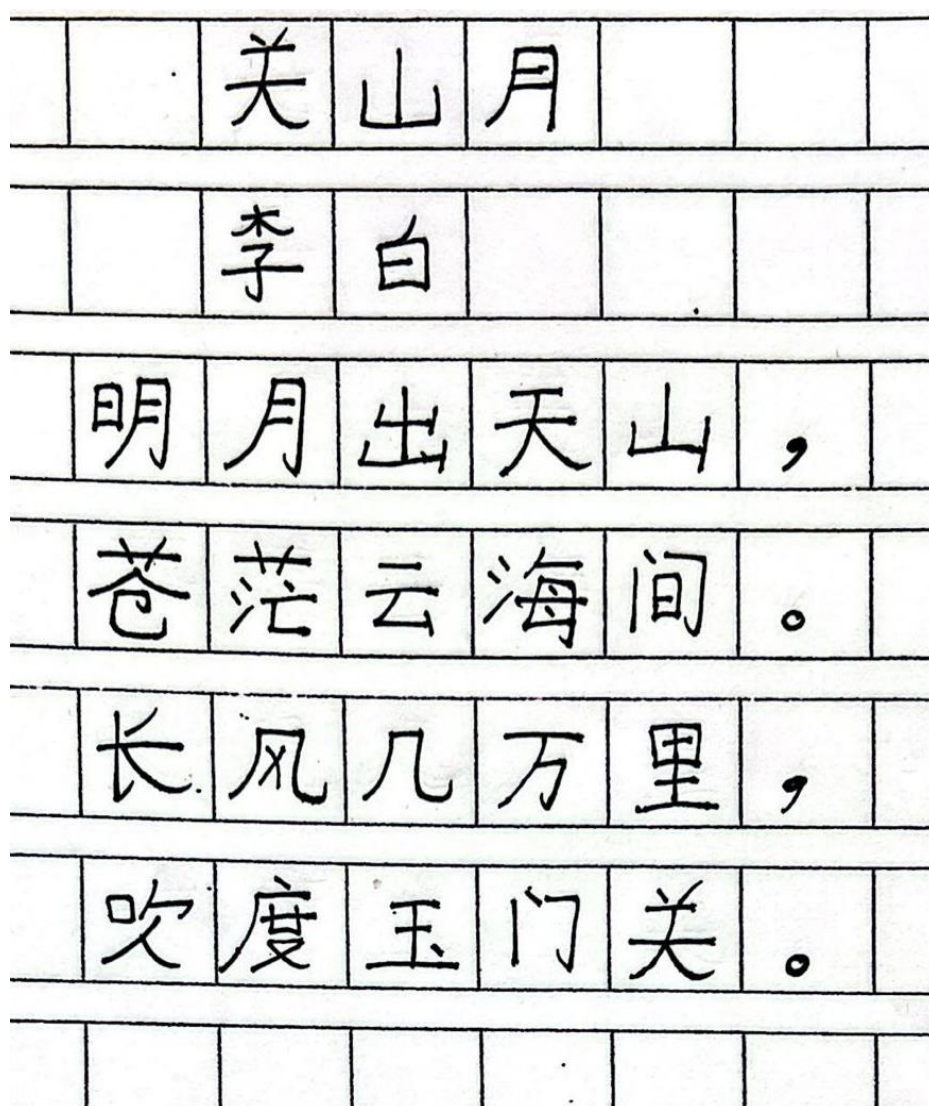 关山月
李白
明月出天山，
苍茫云海间。
长风几万里，
吹度玉门关。